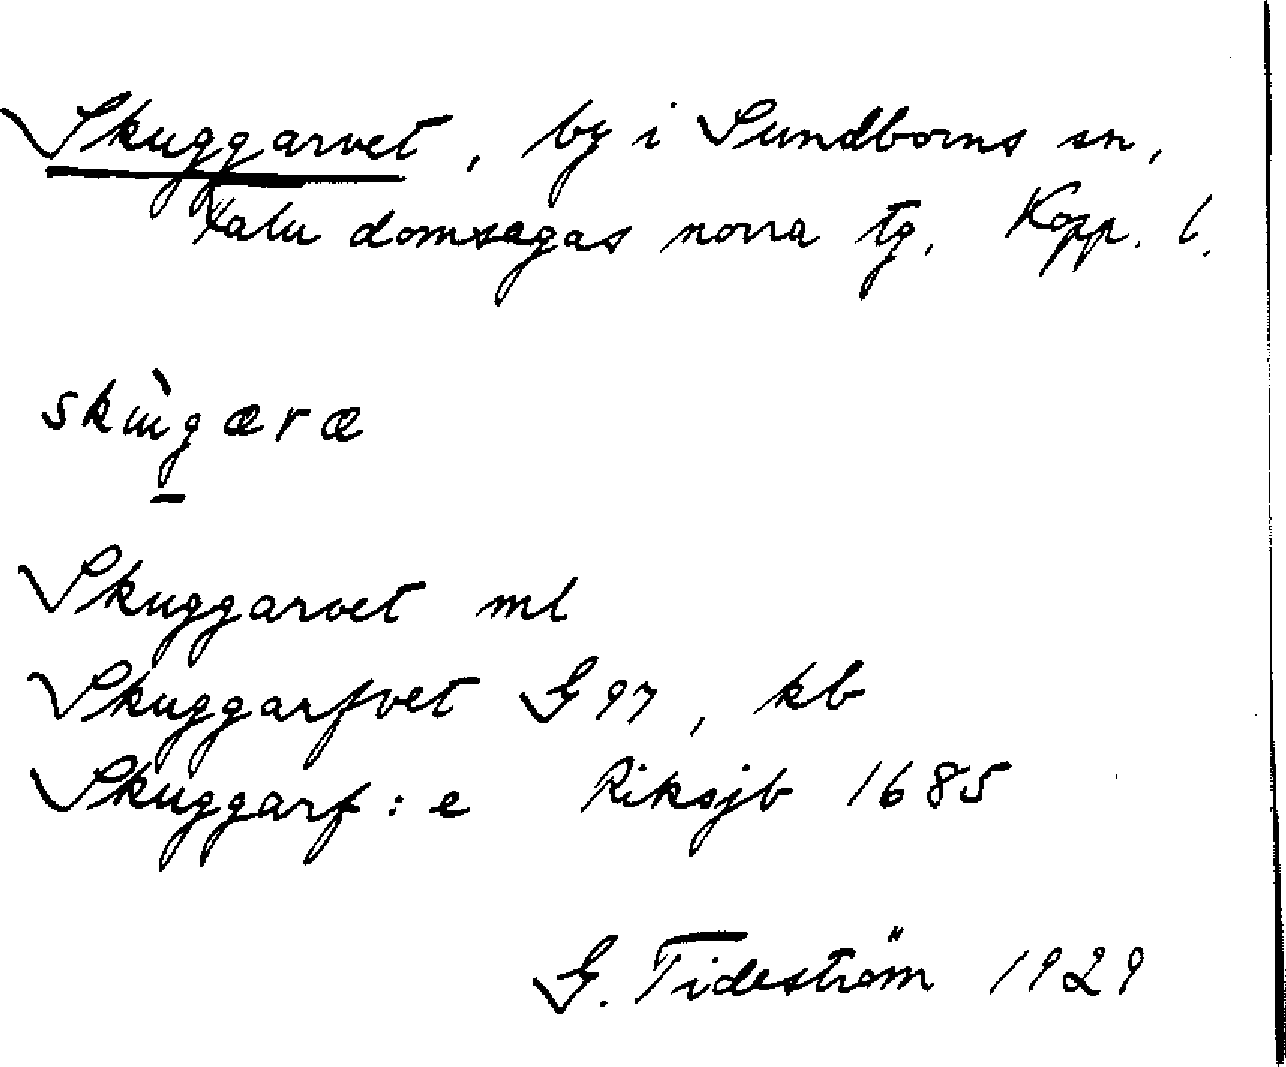 Skuggarvet, by i Sundborns sn,
Falu domsagas norra tg. Kopp. l.
skùgæræ
Skuggarvet ml
Skuggarfvet G 97, kb
Skuggarf:e Riksjb 1685
G. Tideström 1929